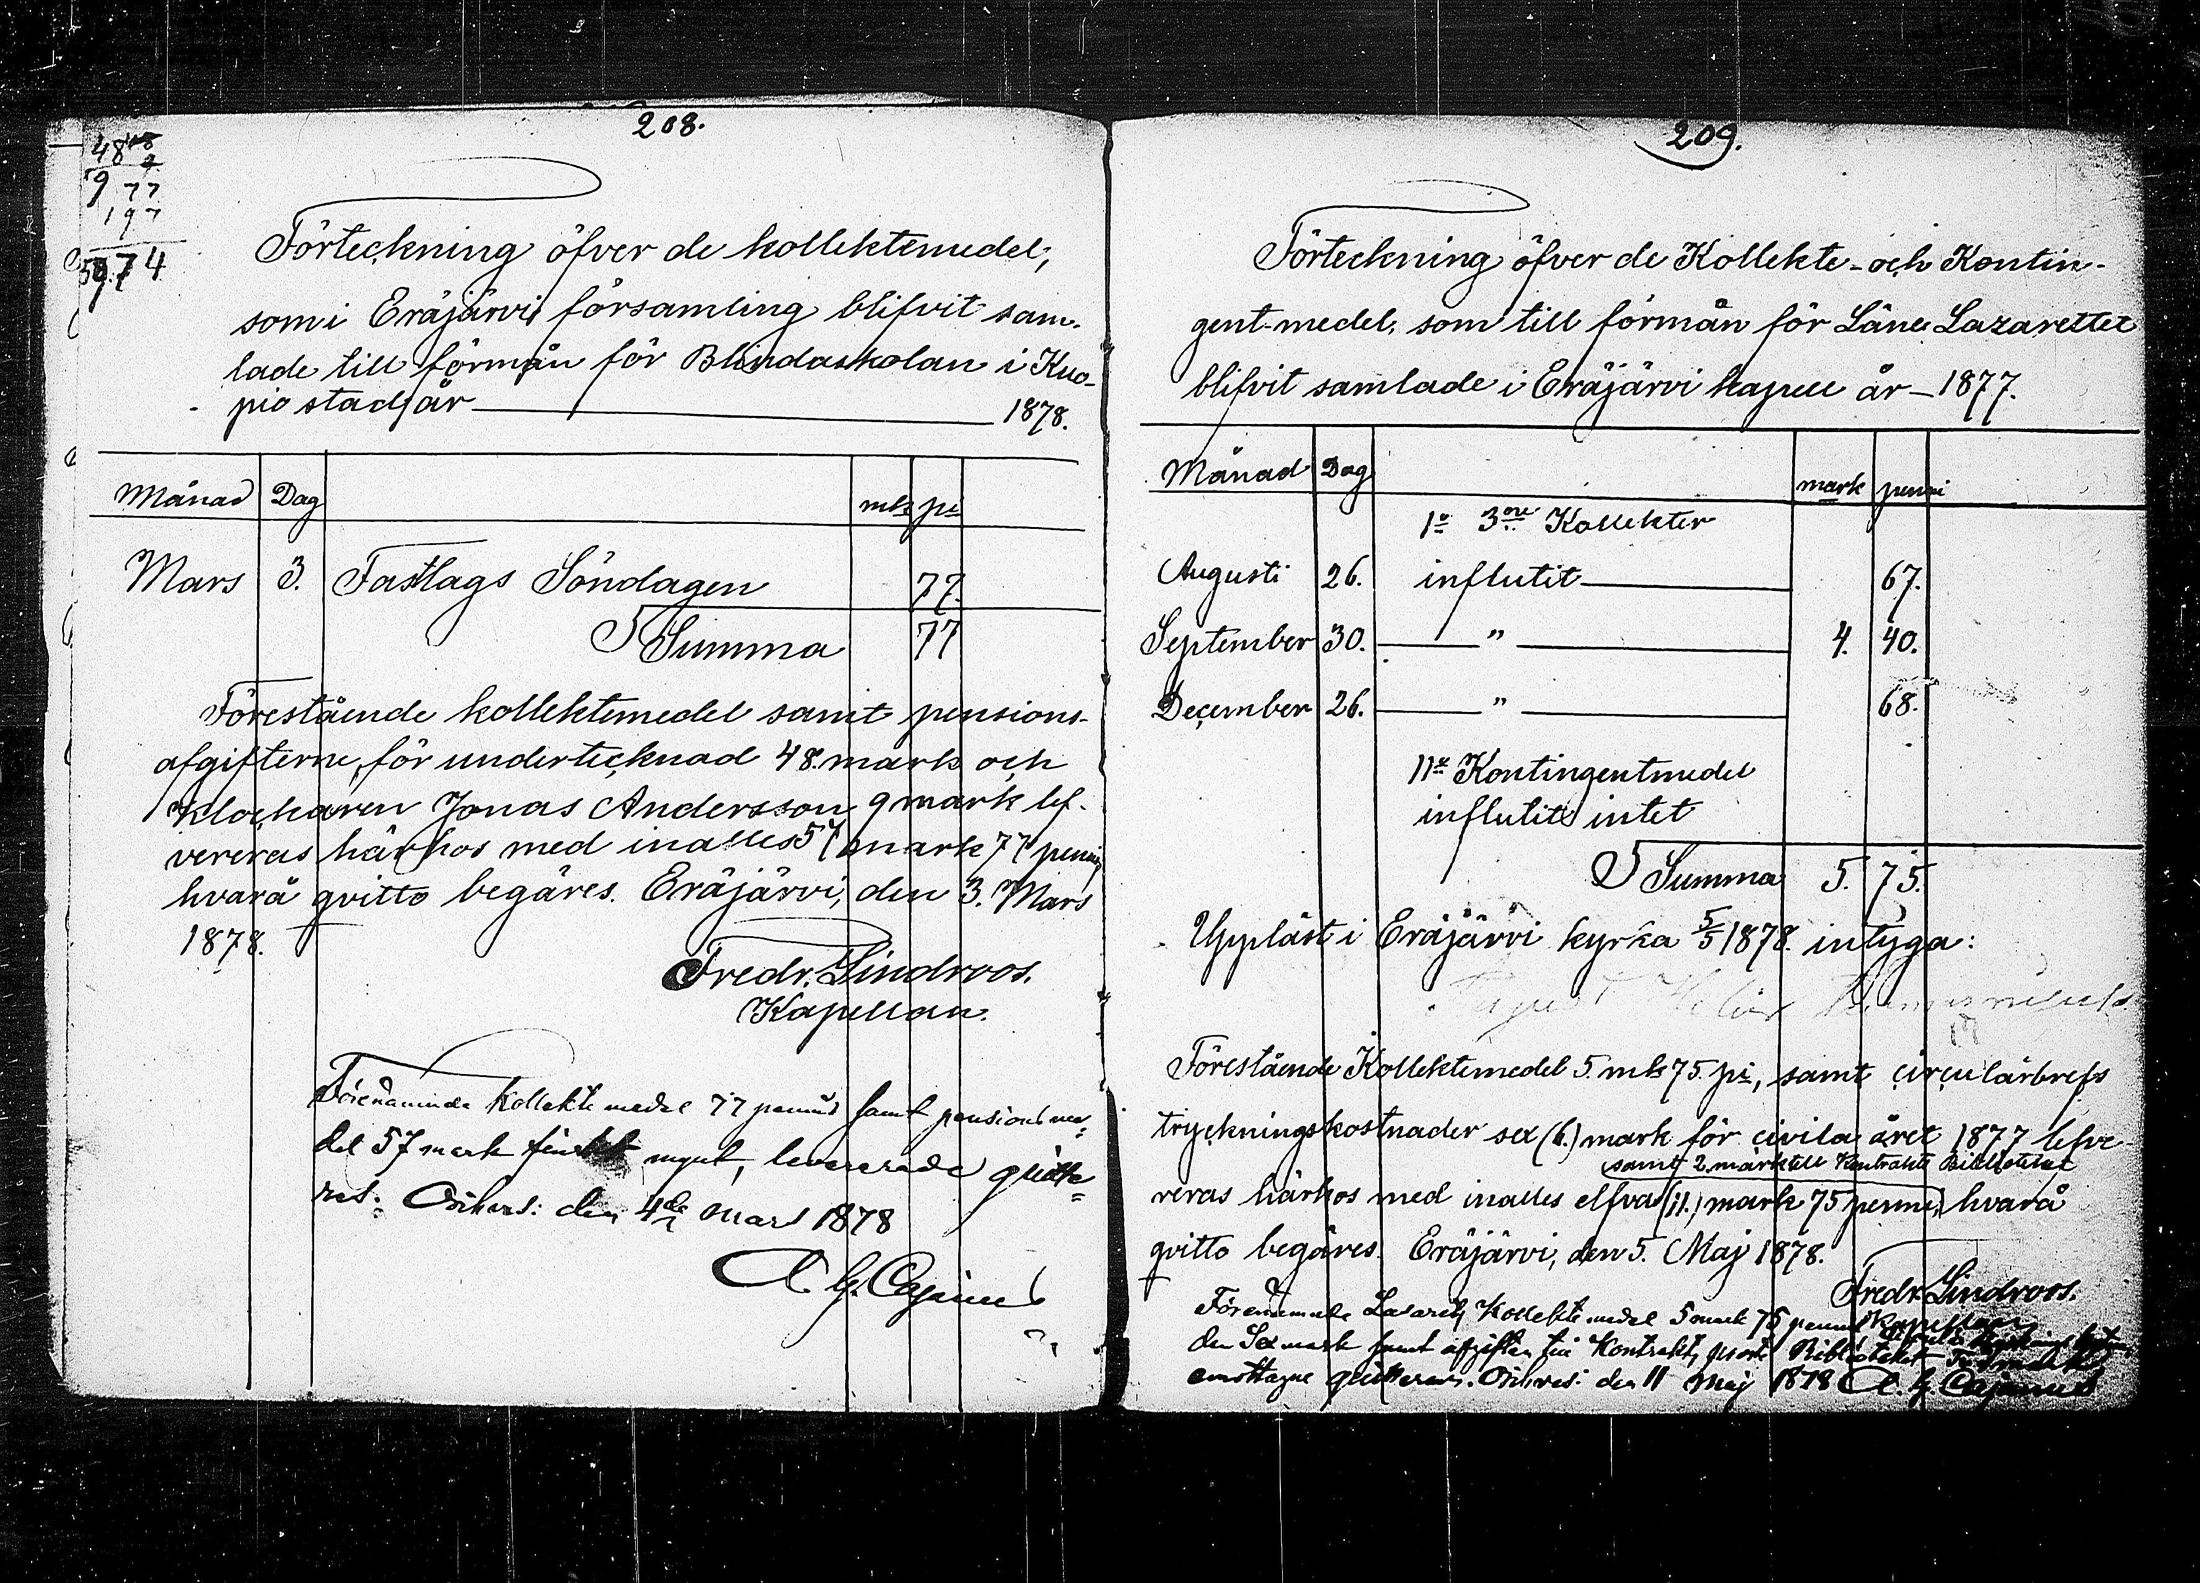 208.
48
9 77
197
59.74
Förteckning öfver de kollektmedel,
som i Eräjärvi församling blifvit sam-
lade till förmån för Blindaskolan i Kuo-
pio stad år 1878.
Månad Dag mk pi
Mars 3. Fastlags Söndagen 77.
Summa 77
Förestående kollektmedel samt pensions-
afgifterne för undertecknad 48. mark och
klockaren Jonas Andersson 9 mark lef-
vereras härhos med inalles 57 mark 77 penni,
hvarå qvitto begäres. Eräjärvi, den 3. Mars
1878.
Fredr. Lindroos.
Kapellan.
Förenämnde Kollekte medel 77 penni samt pensions me-
del 57 mark finskt mynt, levererade quitte-
ras. Orihves: den 4de Mars 1878
A. G. Cajanus
209.
Förteckning öfver de Kollekte- och Kontin-
gent-medel, som till förmån för Läne Lazarettet
blifvit samlade i Eräjärvi kapell år 1877.
Månad Dag mark penni
1o 3ne Kollekter
Augusti 26. influtit 67.
September 30. " 4. 40.
December 26. " 68.
11o Kontingentmedel
influtit intet
Summa 5. 75.
Uppläst i Eräjärvi kyrka 5/5 1878. intyga:
Förestående Kollektemedel 5. mk 75. pi, samt circulärbrefs
tryckningskostnader sex (6.) mark för civila året 1877 lefve-
samt 2 mark till Kontrakts Biblioteket
reras härhos med inalles elfva (11.) mark 75 penni, hvarå
qvitto begäres. Eräjärvi, den 5. Maj 1878.
Fredr. Lindroos.
Kapellan
Förenämnde Lasaretts Kollekte medel 5 mark 75 penni
den Sex mark samt afgiften till Kontrakts Biblioteket
emottagne quitteras. Orihves: den 11 Maj 1878 A. G. Cajanus